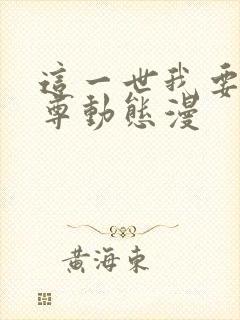 這一世我要
尊動態漫
黃海東